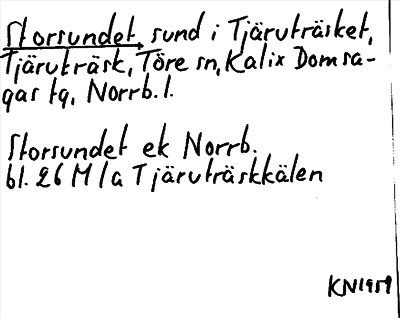 Storsundet, sund i Tjäruträsket,
Tjäruträsk, Töre sn, Kalix Domsa-
gas tg, Norrb. l.
Storsundet ek Norrb.
bl. 26 M/a Tjäruträskkälen
KN1959